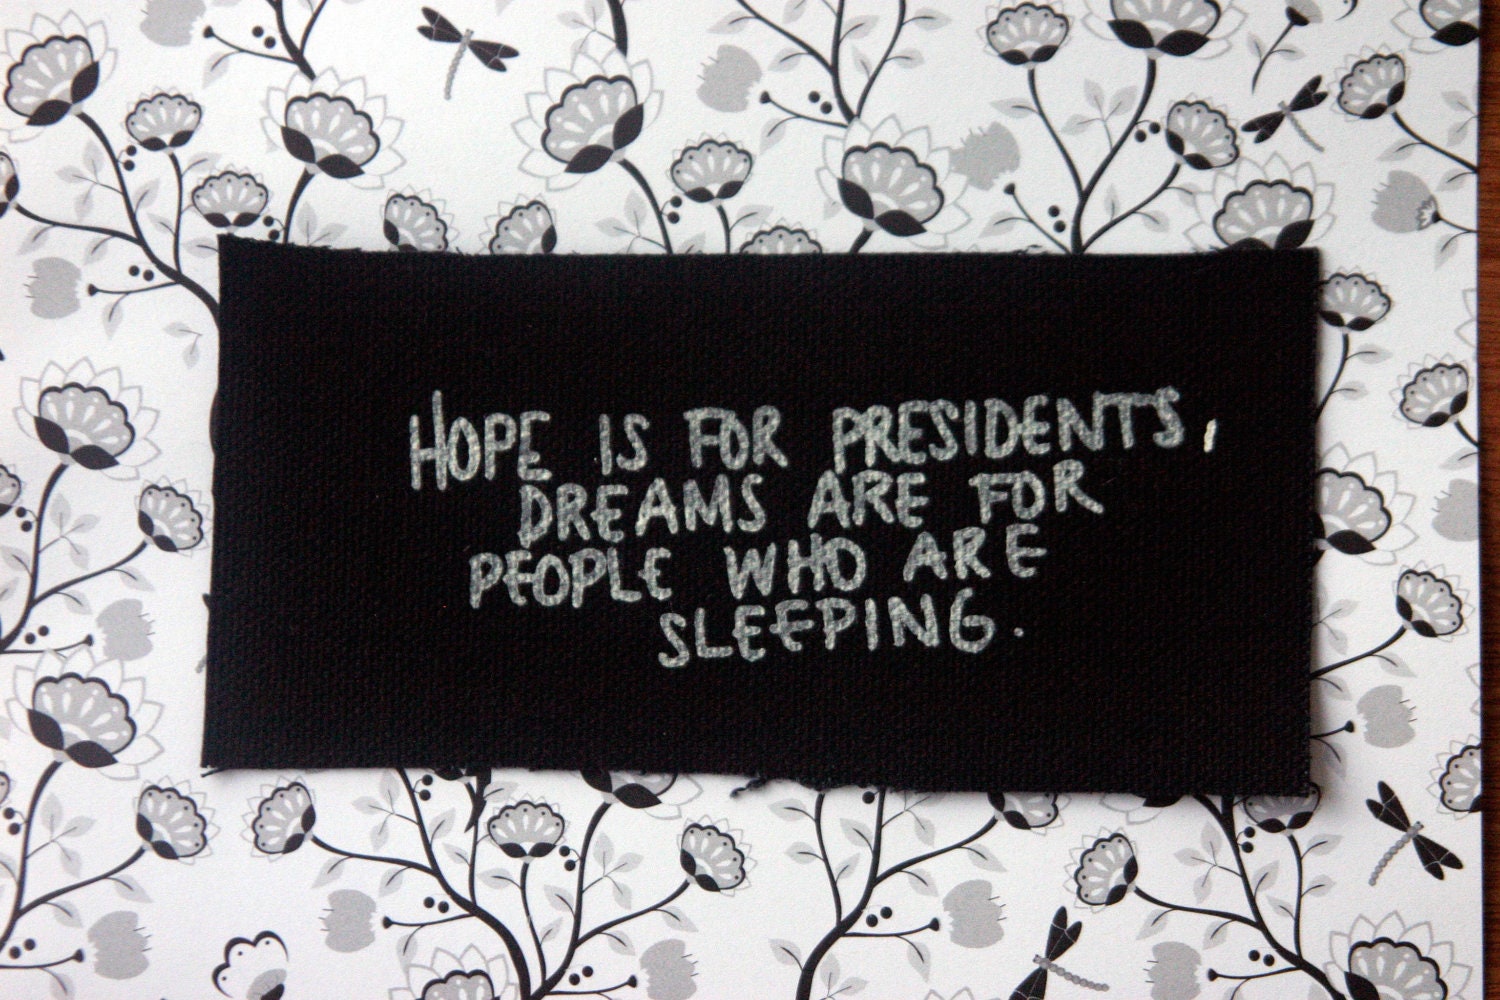 HOPE IS FOR PRESIDENTS,
DREAMS ARE FOR
PEOPLE WHO ARE
SLEEPING.